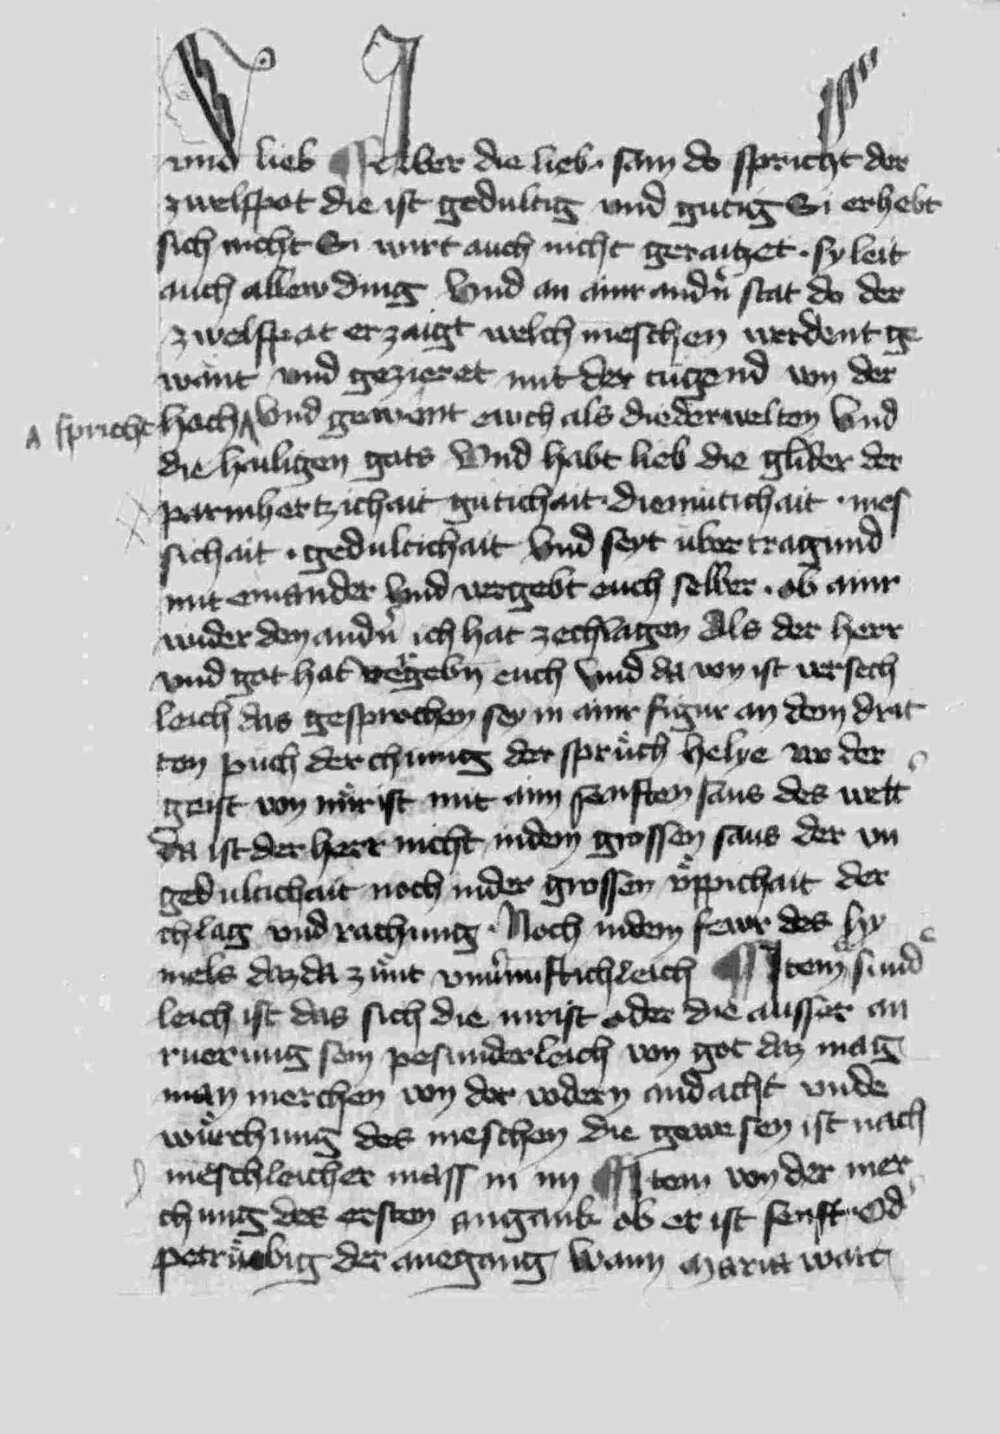 und lieb ¶ Aber die lieb · sam do spricht der
zwelfpot die ist gedultig und gutig Si erhebt
sich nicht Si wirt auch nicht geraitzet · sy leit
auch allew ding Und an ainr andn̄ stat do der
zwelfpot erzaigt welch meschen werdent ge
want und gezieret mit der tugend von der
spricht hoch Und gewent ewch als die derwelten Und
die hailigen gots Und habt lieb die glider der
parmhertzichait gutichait · diemutichait · mes
sichait · gedultichait Und seyt übertragund
mit einander Und vergebt euch selber · ob ainr
wider den andn̄ ich hat ze chlagen Als der herr
und got hat vergebn̄ euch Und da von ist versech
leich das gesprochen sey in ainr figur an dem drit
ten puch der chunig der sprüch helye wo der
geist von mir ist mit aim senften saus des welt
da ist der herr nicht in dem grossen saus der un
gedultichait noch in der grossen üppichait der
chlag und rachung · Noch in dem fewr des hy
mels daz da zünt unvernuftichleich ¶ Item sund
leich ist das sich die inrist oder die ausser an
ruerung sein pesunderleich von got daz mag
man merchen von der vodern andacht unde
würchung des meschen die gewesen ist nach
meschleicher mass in im ¶ Item von der mer
chung des ersten angank ob er ist senft Od̄
petrüebig der anegang Wann maria wart